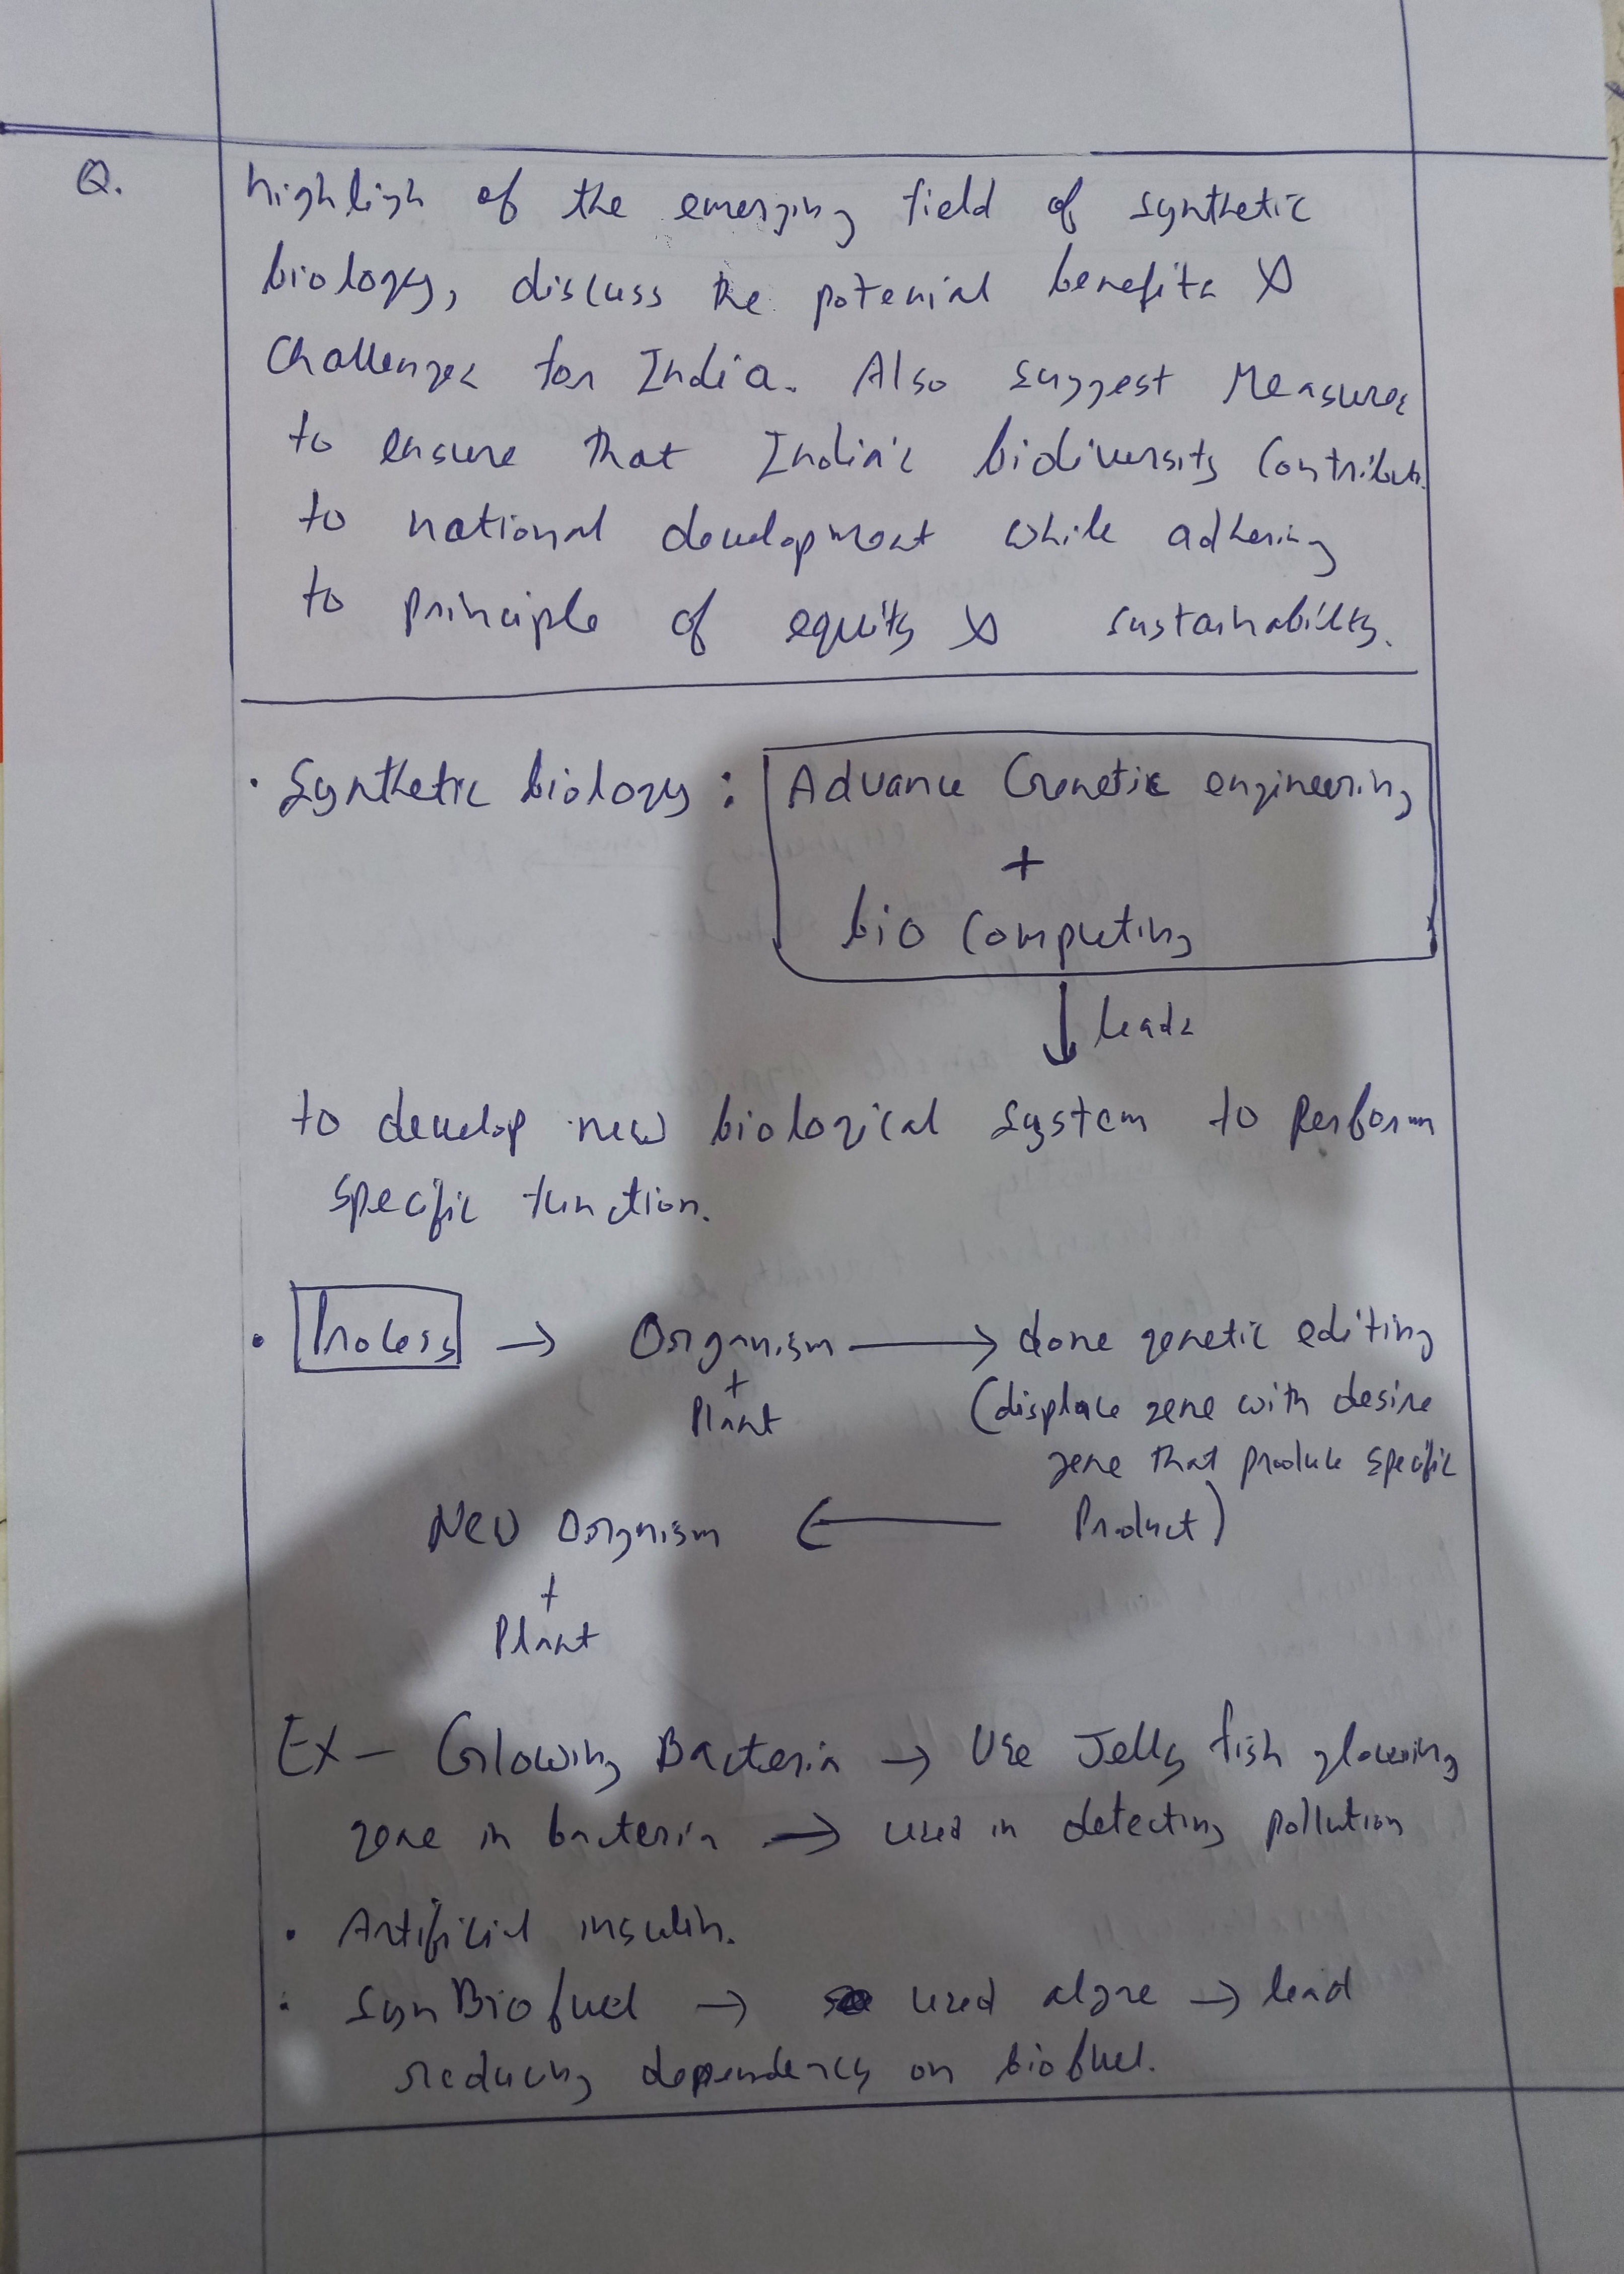 Q. highligh of the emerging field of synthetic
biology, discuss the potenial benefits &
Challenges for India. Also suggest Measures
to ensure that India's bidiversity Contribut.
to national development while adhering
to principle of equity & sustainability.
• Synthetic biology : Advance Genetic engineering
+
bio Computing
↓ leads
to develop new biological system to perform
specific function.
• Process → Organism → done genetic editing
+
Plant
(displace gene with desire
gene that produce specific
New Orgnism ← Product)
+
Plant
Ex – Glowing Bacteria → Use Jelly fish glowing
gene in bacteria → used in detecting pollution
• Artificial insulin.
• Syn Bio fuel → used algae → lead
reducing dependency on biofuel.